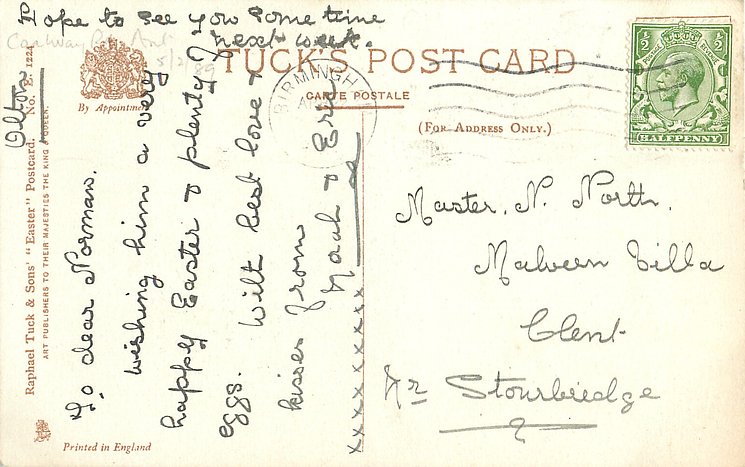 Hope to see you some time
next week.
TUCK'S POST CARD
CARTE POSTALE
By Appointment
(FOR ADDRESS ONLY.)
BIRMINGH
1/2 1/2
HALFPENNY
Raphael Tuck & Sons' "Easter" Postcard. No. E. 1224
ART PUBLISHERS TO THEIR MAJESTIES THE KING & QUEEN.
Olton
To dear Norman.
wishing him a very
happy Easter & plenty of
eggs. With best love &
kisses from
Noah & Eric
xxxxxxxxxxxxx
Master. N. North.
Malvern Villa
Clent
Nr Stourbridge
Printed in England